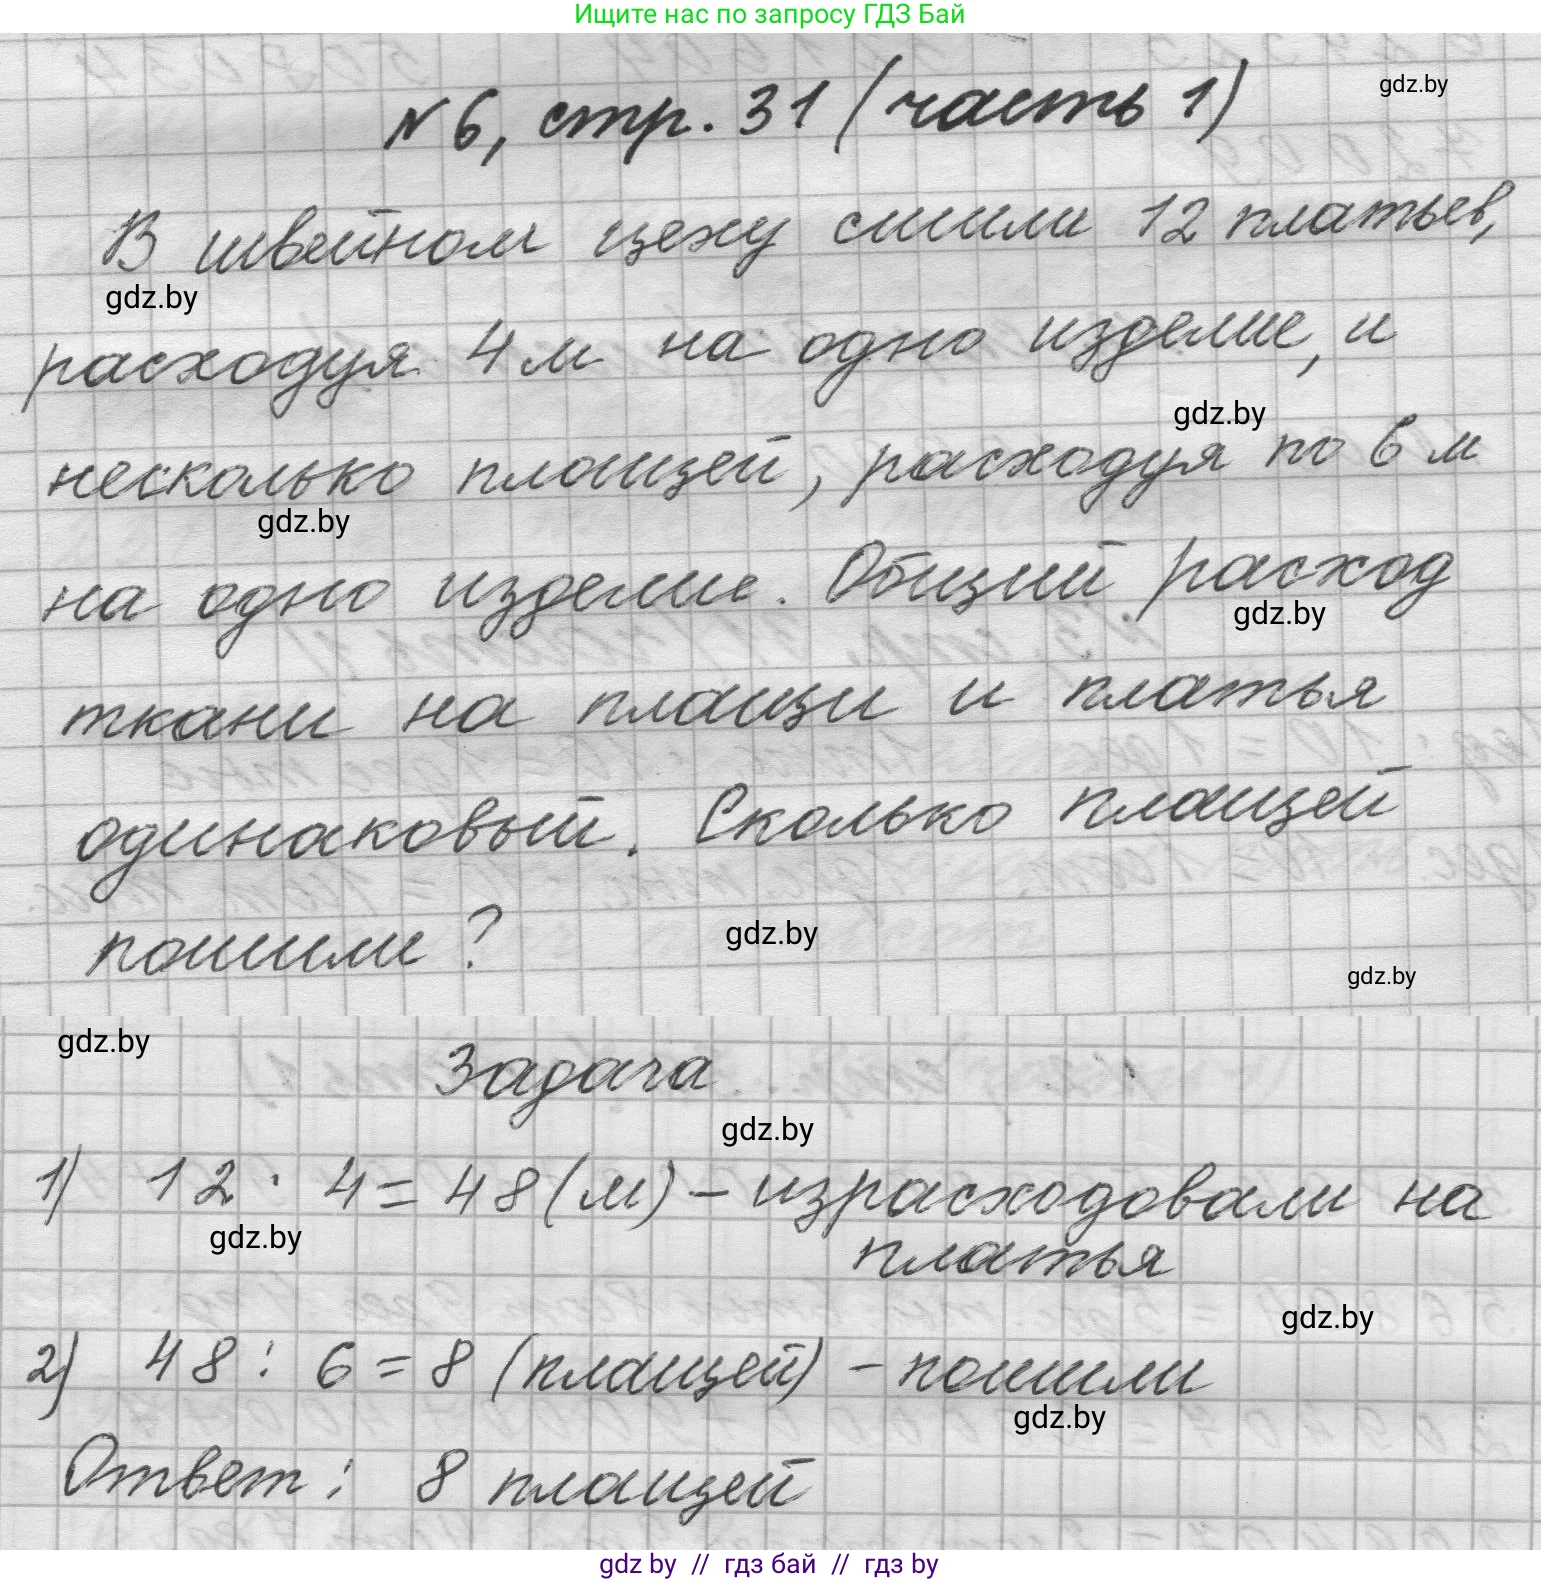 Ищите нас по запросу ГДЗ Бай
gdz.by
№6, стр. 31 (часть 1)
В швейном цеху сшили 12 платьев,
gdz.by
расходуя 4 м на одно изделие, и
gdz.by
несколько плащей, расходуя по 6 м
gdz.by
на одно изделие. Общий расход
gdz.by
ткани на плащи и платья
одинаковый. Сколько плащей
пошили?
gdz.by
gdz.by
gdz.by
Задача
gdz.by
1) 12 · 4 = 48 (м) – израсходовали на
gdz.by
платья
gdz.by
2) 48 : 6 = 8 (плащей) – пошили
gdz.by
Ответ: 8 плащей
gdz by // гдз бай // гдз by